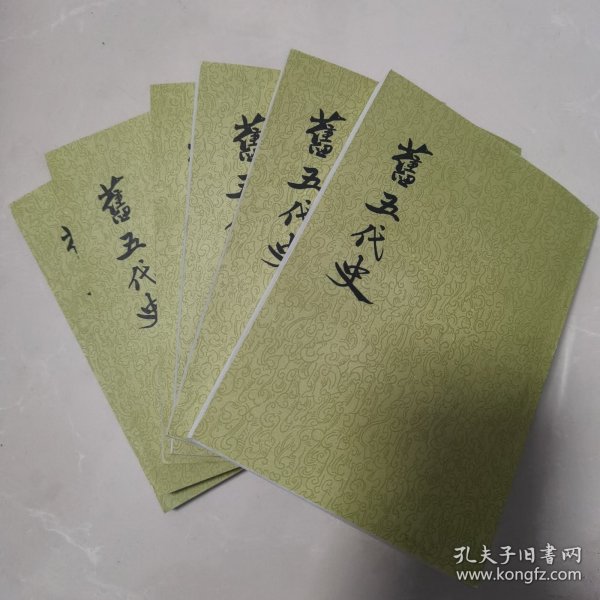 舊五代史
舊五代史
舊五
舊五代史
孔夫子旧書网
www.kongfz.com